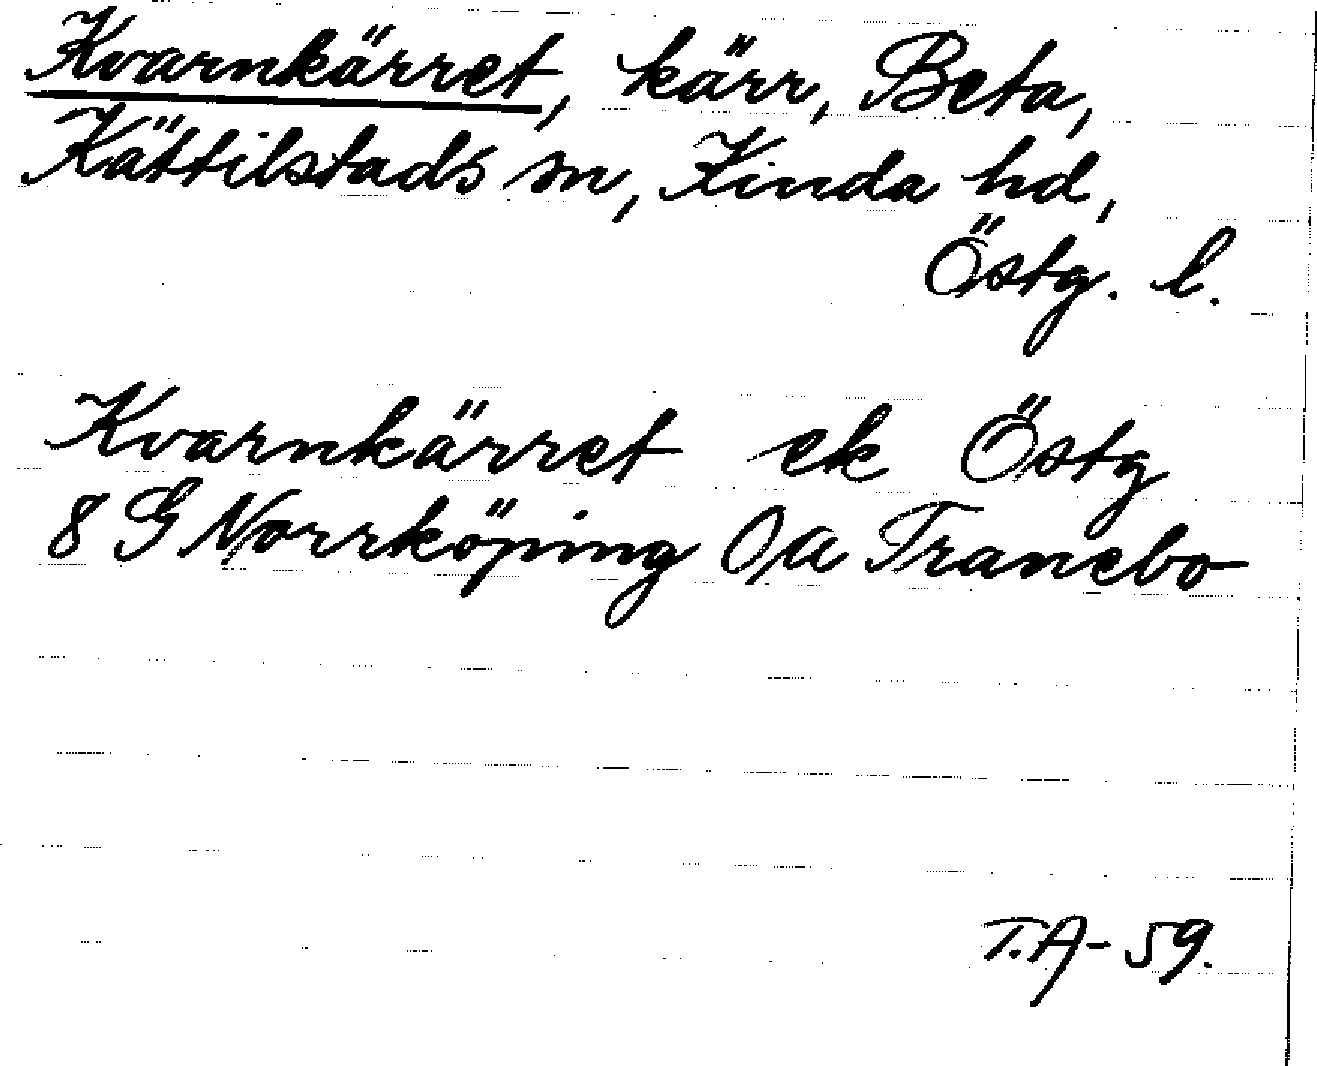 Kvarnkärret, kärr, Beta,
Kättilstads sn, Kinda hd,
Östg. l.
Kvarnkärret ek Östg
8 G Norrköping 0/a Tranebo
T.A-59.